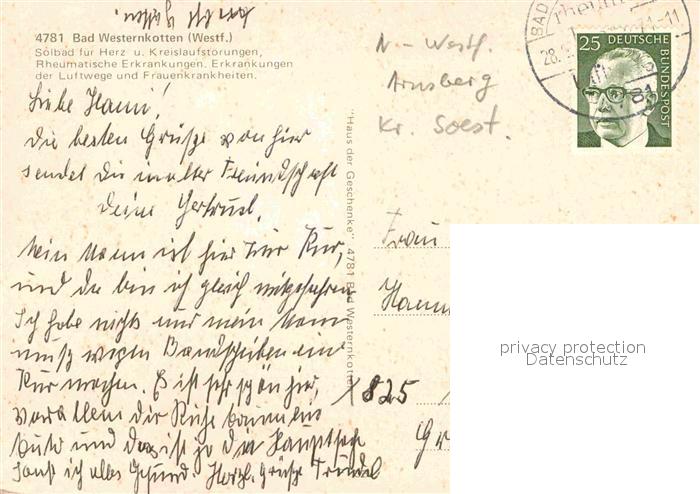 4781 Bad Westernkotten (Westf.)
Solbad für Herz- u. Kreislaufstörungen,
Rheumatische Erkrankungen. Erkrankungen
der Luftwege und Frauenkrankheiten.
Liebe Hanni!
die besten Grüße von hier
sendet dir in alter Freundschaft
deine Gertrud.
Mein Mann ist hier zur Kur,
und da bin ich gleich mitgefahren
Ich habe nichts und mein Mann
muß wegen Bandscheiben eine
Kur machen. Es ist sehr schön hier,
vor allem die Ruhe kaum ein
Auto und das ist ja die Hauptsache
sonst ist alles gesund. Herzl. Grüße Trudel
"Haus der Geschenke" 4781 Bad Westernkotten
N-Westf.
Arnsberg
Kr. Soest.
BAD
rheum
28.
-11
25 DEUTSCHE BUNDESPOST
Frau
Hann
1825
Gr
privacy protection
Datenschutz